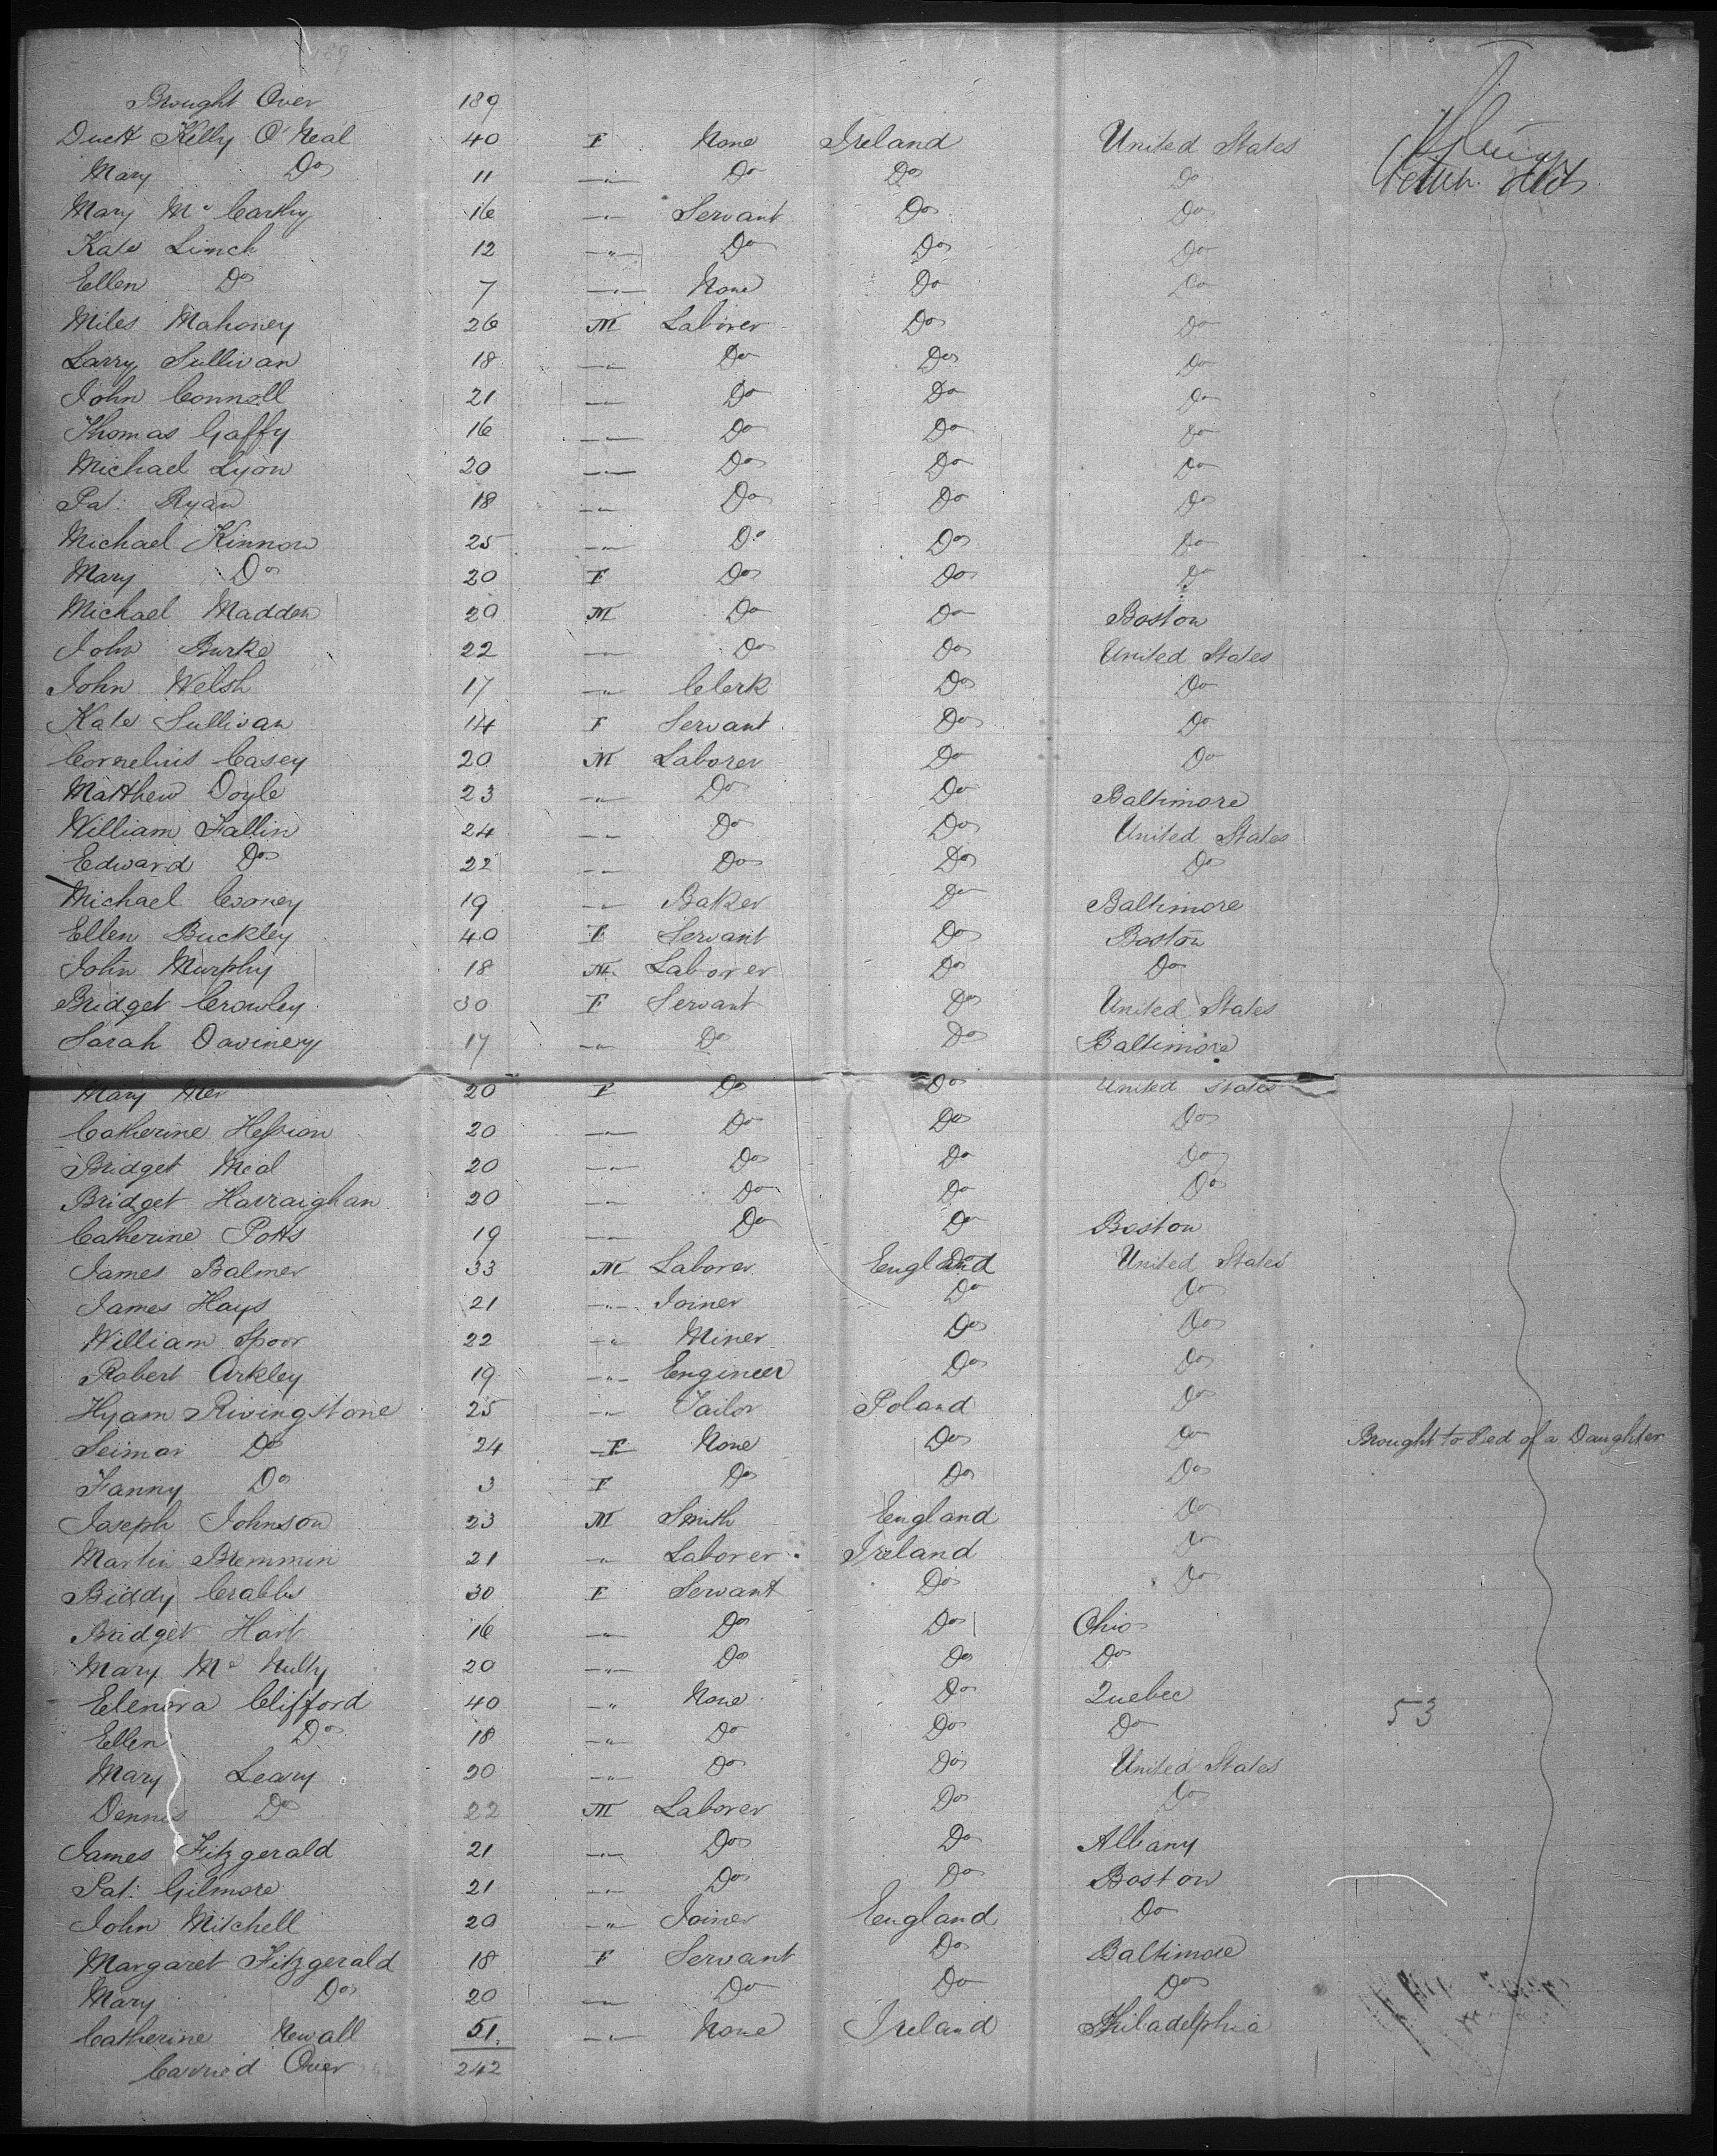 Brought Over 189
Duck Kelly O'Neal 40 F None Ireland United States
Mary Do 11 —"— Do Do Do
Mary Mc Carthy 16 —"— Servant Do Do
Kate Linch 12 —"— Do Do Do
Ellen Do 7 —"— None Do Do
Miles Mahoney 26 M Laborer Do Do
Larry Sullivan 18 —"— Do Do Do
John Connell 21 —"— Do Do Do
Thomas Gaffy 16 —"— Do Do Do
Michael Lyon 20 —"— Do Do Do
Pat: Ryan 18 —"— Do Do Do
Michael Kinnon 25 —"— Do Do Do
Mary Do 20 F Do Do Do
Michael Madden 20 M Do Do Boston
John Burke 22 —"— Do Do United States
John Welsh 17 —"— Clerk Do Do
Kate Sullivan 14 F Servant Do Do
Cornelius Casey 20 M Laborer Do Do
Matthew Doyle 23 —"— Do Do Baltimore
William Fallin 24 —"— Do Do United States
Edward Do 22 —"— Do Do Do
Michael Cooney 19 —"— Baker Do Baltimore
Ellen Buckley 40 F Servant Do Boston
John Murphy 18 M Laborer Do Do
Bridget Crowley 30 F Servant Do United States
Sarah Davinery 17 —"— Do Do Baltimore
Mary 20 F Do Do United States
Catherine Hession 20 —"— Do Do Do
Bridget Meal 20 —"— Do Do Do
Bridget Harraighan 20 —"— Do Do Do
Catherine Potts 19 —"— Do Do Boston
James Balmer 33 M Laborer England United States
James Hays 21 —"— Joiner Do Do
William Spoor 22 —"— Miner Do Do
Robert Arkley 19 —"— Engineer Do Do
Hyam Rivingstone 25 —"— Tailor Poland Do
Seimar Do 24 F None Do Do Brought to Bed of a Daughter
Fanny Do 3 F Do Do Do
Joseph Johnson 23 M Smith England Do
Martin Bremmin 21 " Laborer Ireland Do
Biddy Crabbs 30 F Servant Do Do
Bridget Hart 16 —"— Do Do Ohio
Mary Mc Nulty 20 —"— Do Do Do
Elenora Clifford 40 —"— None Do Quebec 53
Ellen Do 18 —"— Do Do Do
Mary Leary 20 —"— Do Do United States
Dennis Do 22 M Laborer Do Do
James Fitzgerald 21 —"— Do Do Albany
Pat: Gilmore 21 —"— Do Do Boston
John Mitchell 20 —"— Joiner England Do
Margaret Fitzgerald 18 F Servant Do Baltimore
Mary Do 20 —"— Do Do Do
Catherine Newall 51. —"— None Ireland Philadelphia
Carried Over 242